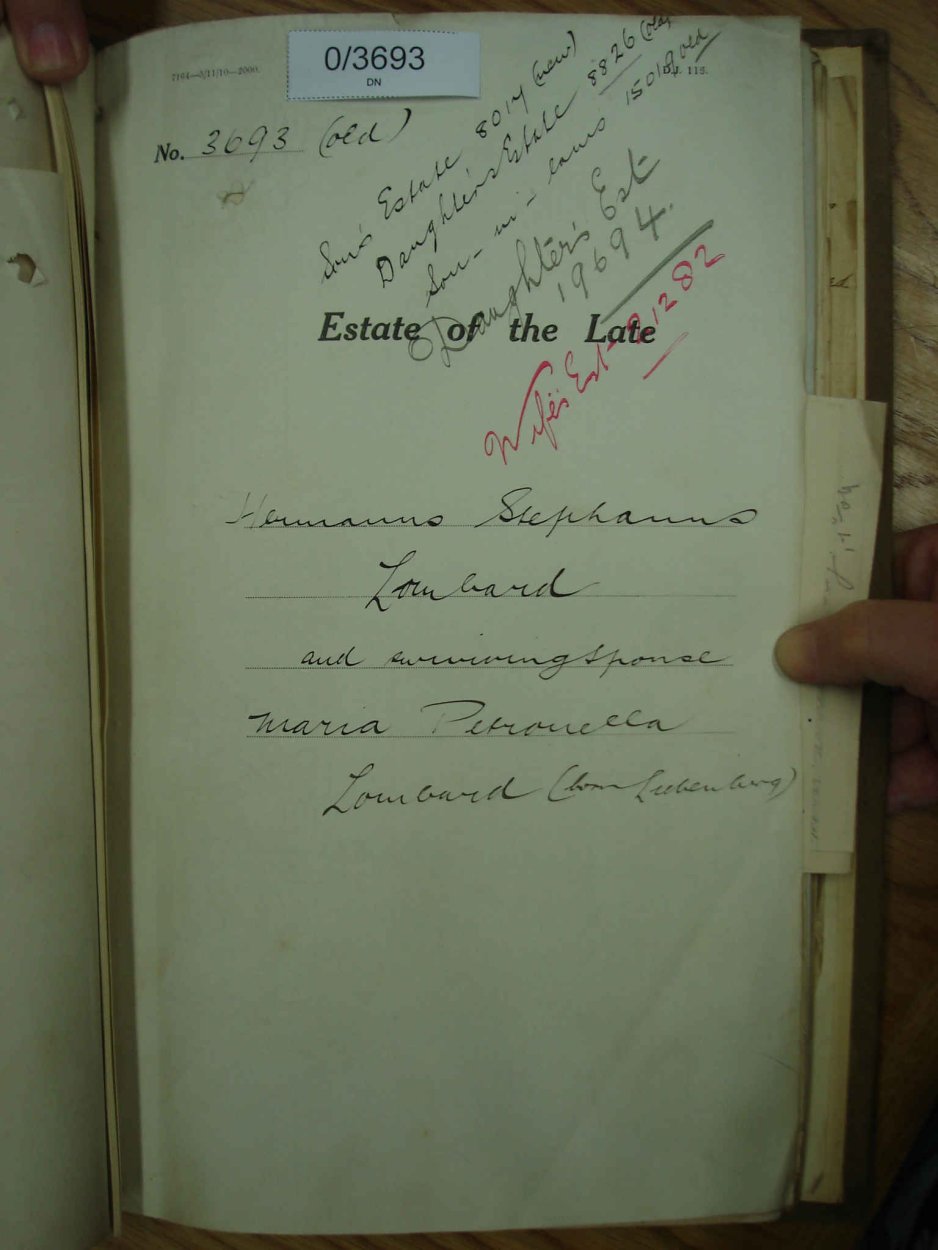 7164—3/11/10—2000.
0/3693
DN
115.
No. 3693 (old)
Son's Estate 8017 (new)
Daughter's Estate 8826 (old)
Son-in-laws 15019 old
Daughter's Est
19694.
Wife's Est 21282
Estate of the Late
Hermanus Stephanus
Lombard
and surviving spouse
Maria Petronella
Lombard (born Liebenberg)